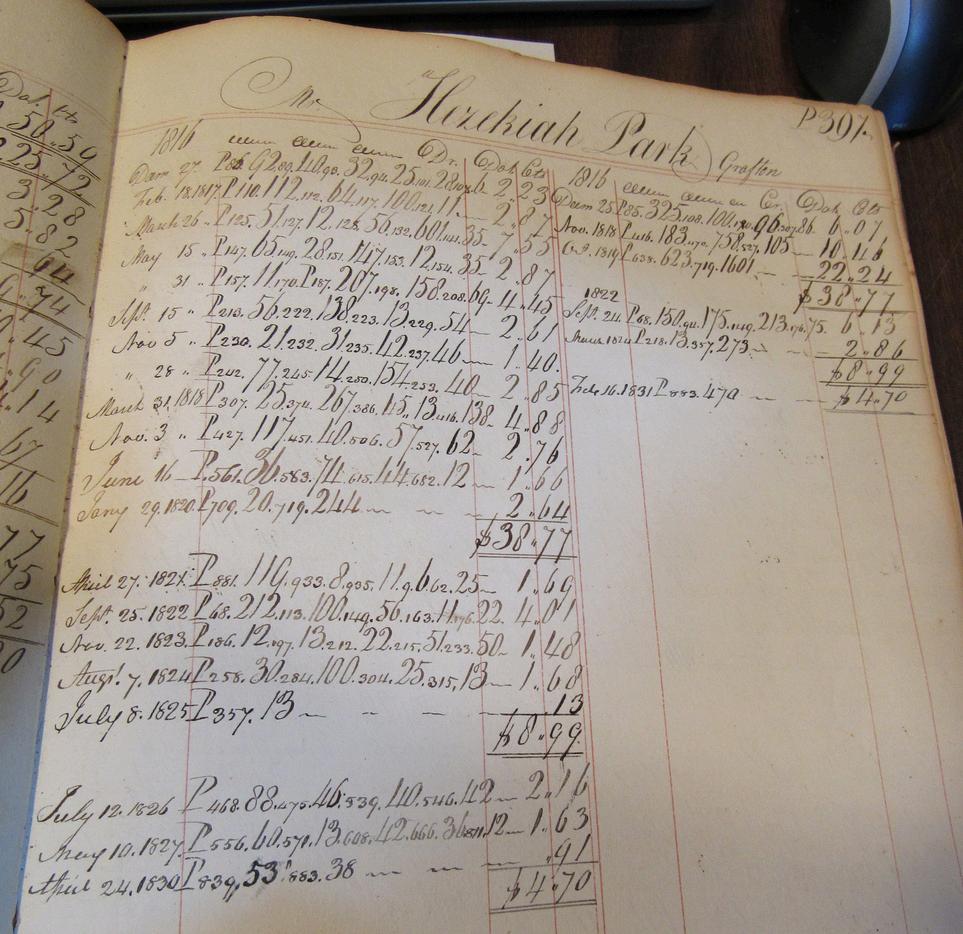 Dol. Cts
50.59
25.72
3.28
5.82
64
6.74
45
90
1.14
67
16
77
75
52
20
P307.
Mr. Hezekiah Park Grafton
1816 Dr. Dol Cts
Feb. 18. 1817. P110. 112. 112. 64. 117. 100. 121. 11 — 2.87
March 26 " P125. 51. 127. 12. 128. 50. 132. 601. 141. 35 — 7.55
May 15 " P147. 65. 149. 28. 151. 147. 153. 12. 154. 35 — 2.87
" 31 " P157. 11. 170. P187. 207. 198. 158. 208. 69 — 4.45
Sept. 15 " P213. 56. 222. 138. 223. 13. 229. 54 — 2.61
Nov 5 " P230. 21. 232. 31. 235. 42. 237. 46 — 1.40.
" 28 " P242. 77. 245. 14. 250. 154. 253. 40 — 2.85
March 31. 1818 P307. 25. 374. 267. 386. 45. 13. 416. 138 — 4.88
Nov. 3 " P427. 117. 451. 40. 506. 57. 527. 62 — 2.76
June 16 — P561. 36. 583. 74. 615. 44. 682. 12 — 1.66
Jany 29. 1820. P709. 20. 719. 244 — — — 2.64
$38.77
April 27. 1821. P881. 119. 933. 8. 935. 11. 9. 6. 62. 25 — 1.69
Sept. 25. 1822 P68. 212. 113. 100. 149. 56. 163. 11. 176. 22 4.01
Nov. 22. 1823. P186. 12. 197. 13. 212. 22. 215. 51. 233. 50 — 1.48
Augst. 7. 1824 P258. 30. 284. 100. 304. 25. 315. 13 — 1.68
July 8. 1825 P357. 13 — " — — .13
$8.99
July 12. 1826 P468. 88. 475. 46. 539. 40. 546. 42 — 2.16
May 10. 1827. P556. 60. 571. 13. 608. 42. 666. 36. 811. 12 — 1.63
April 24. 1830 P839. 53. 883. 38 — — — .91
$4.70
1816 Cr. Dol Cts
25. P85. 325. 108. 100. 170. 96. 307. 86 6.07
Nov. 1818 P416. 183. 470. 758. 527. 105 — 10.46
Oct. 1819 P638. 623. 719. 1601 — — 22.24
$38.77
1822
Sept. 24. P68. 150. 94. 175. 149. 213. 176. 75. 6.13
March 1824 P218. 13. 357. 273 — — 2.86
$8.99
Feb 16. 1831 P883. 470 — — $4.70